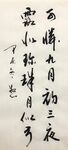 可怜九月初三夜
露似珍珠月似弓